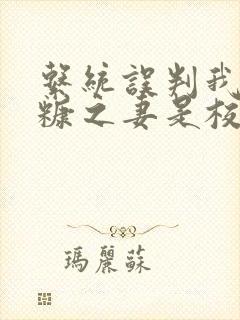 系統誤判我
糠之妻是板
瑪麗蘇